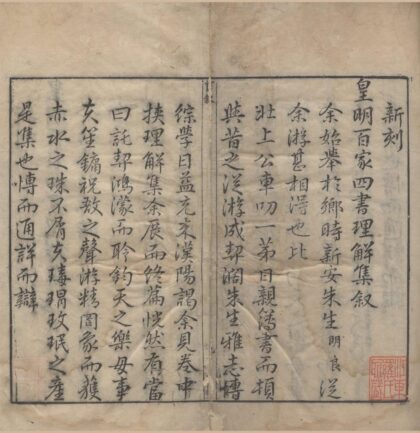 新刻
皇明百家四書理解集叙
余始舉於鄉時新安朱生明良從
余游甚相得也比
壯上公車叨一第日親簿書而頓
與昔之從游成契濶朱生雅志博
綜學日益充來漢陽謁余見卷中
挾理解集余展而終篇恍然有當
曰託契鴻濛而聆鈞天之樂毋事
夫笙鏞柷敔之聲游精罔象而獲
赤水之珠不屑夫瑇瑁玫珉之產
是集也博而通詳而辯